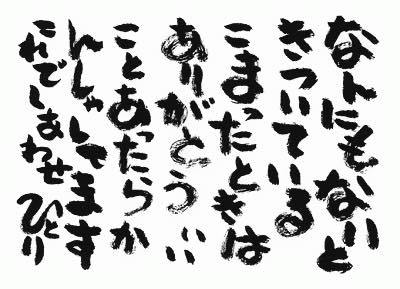 なんにもないと
きついている
こまったときは
ありがとういい
ことあったらか
んしゃしてます
これでしあわせ ひとり